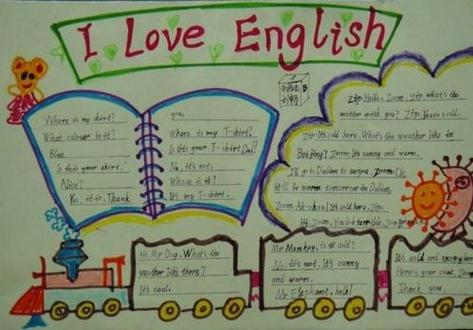 I Love English
Where is my shirt?
What colour is it?
Blue.
Is this your shirt,
Alice?
Yes, it is. Thank
you.
Where is my T-shirt?
Is this your T-shirt, Dad?
No, it's not.
Whose is it?
It's my T-shirt.
Zip: Hello, Zoom. Zip what's the
matter with you? Zip:
Zip: It's cold here. What's the weather like in
Beijing? Zoom: It's sunny and warm.
It'll be warm tomorrow in
Zoom: It's cold here, Zip.
Hi, Zoom.
Hi Mr Dog. What's the
weather like there?
It's cool.
Mr Monkey, is it cold?
No, it's not. It's sunny
and warm.
Mr Elephant, help!
It's cold and
Here's your coat,
Thank you.